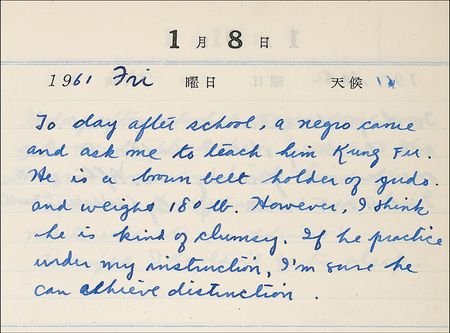 1月8日
1961 Fri 曜日 天候
To day after school, a negro came
and ask me to teach him Kung Fu.
He is a brown belt holder of judo.
and weighs 180 lb. However, I think
he is kind of clumsy. If he practice
under my instruction, I'm sure he
can achieve distinction .